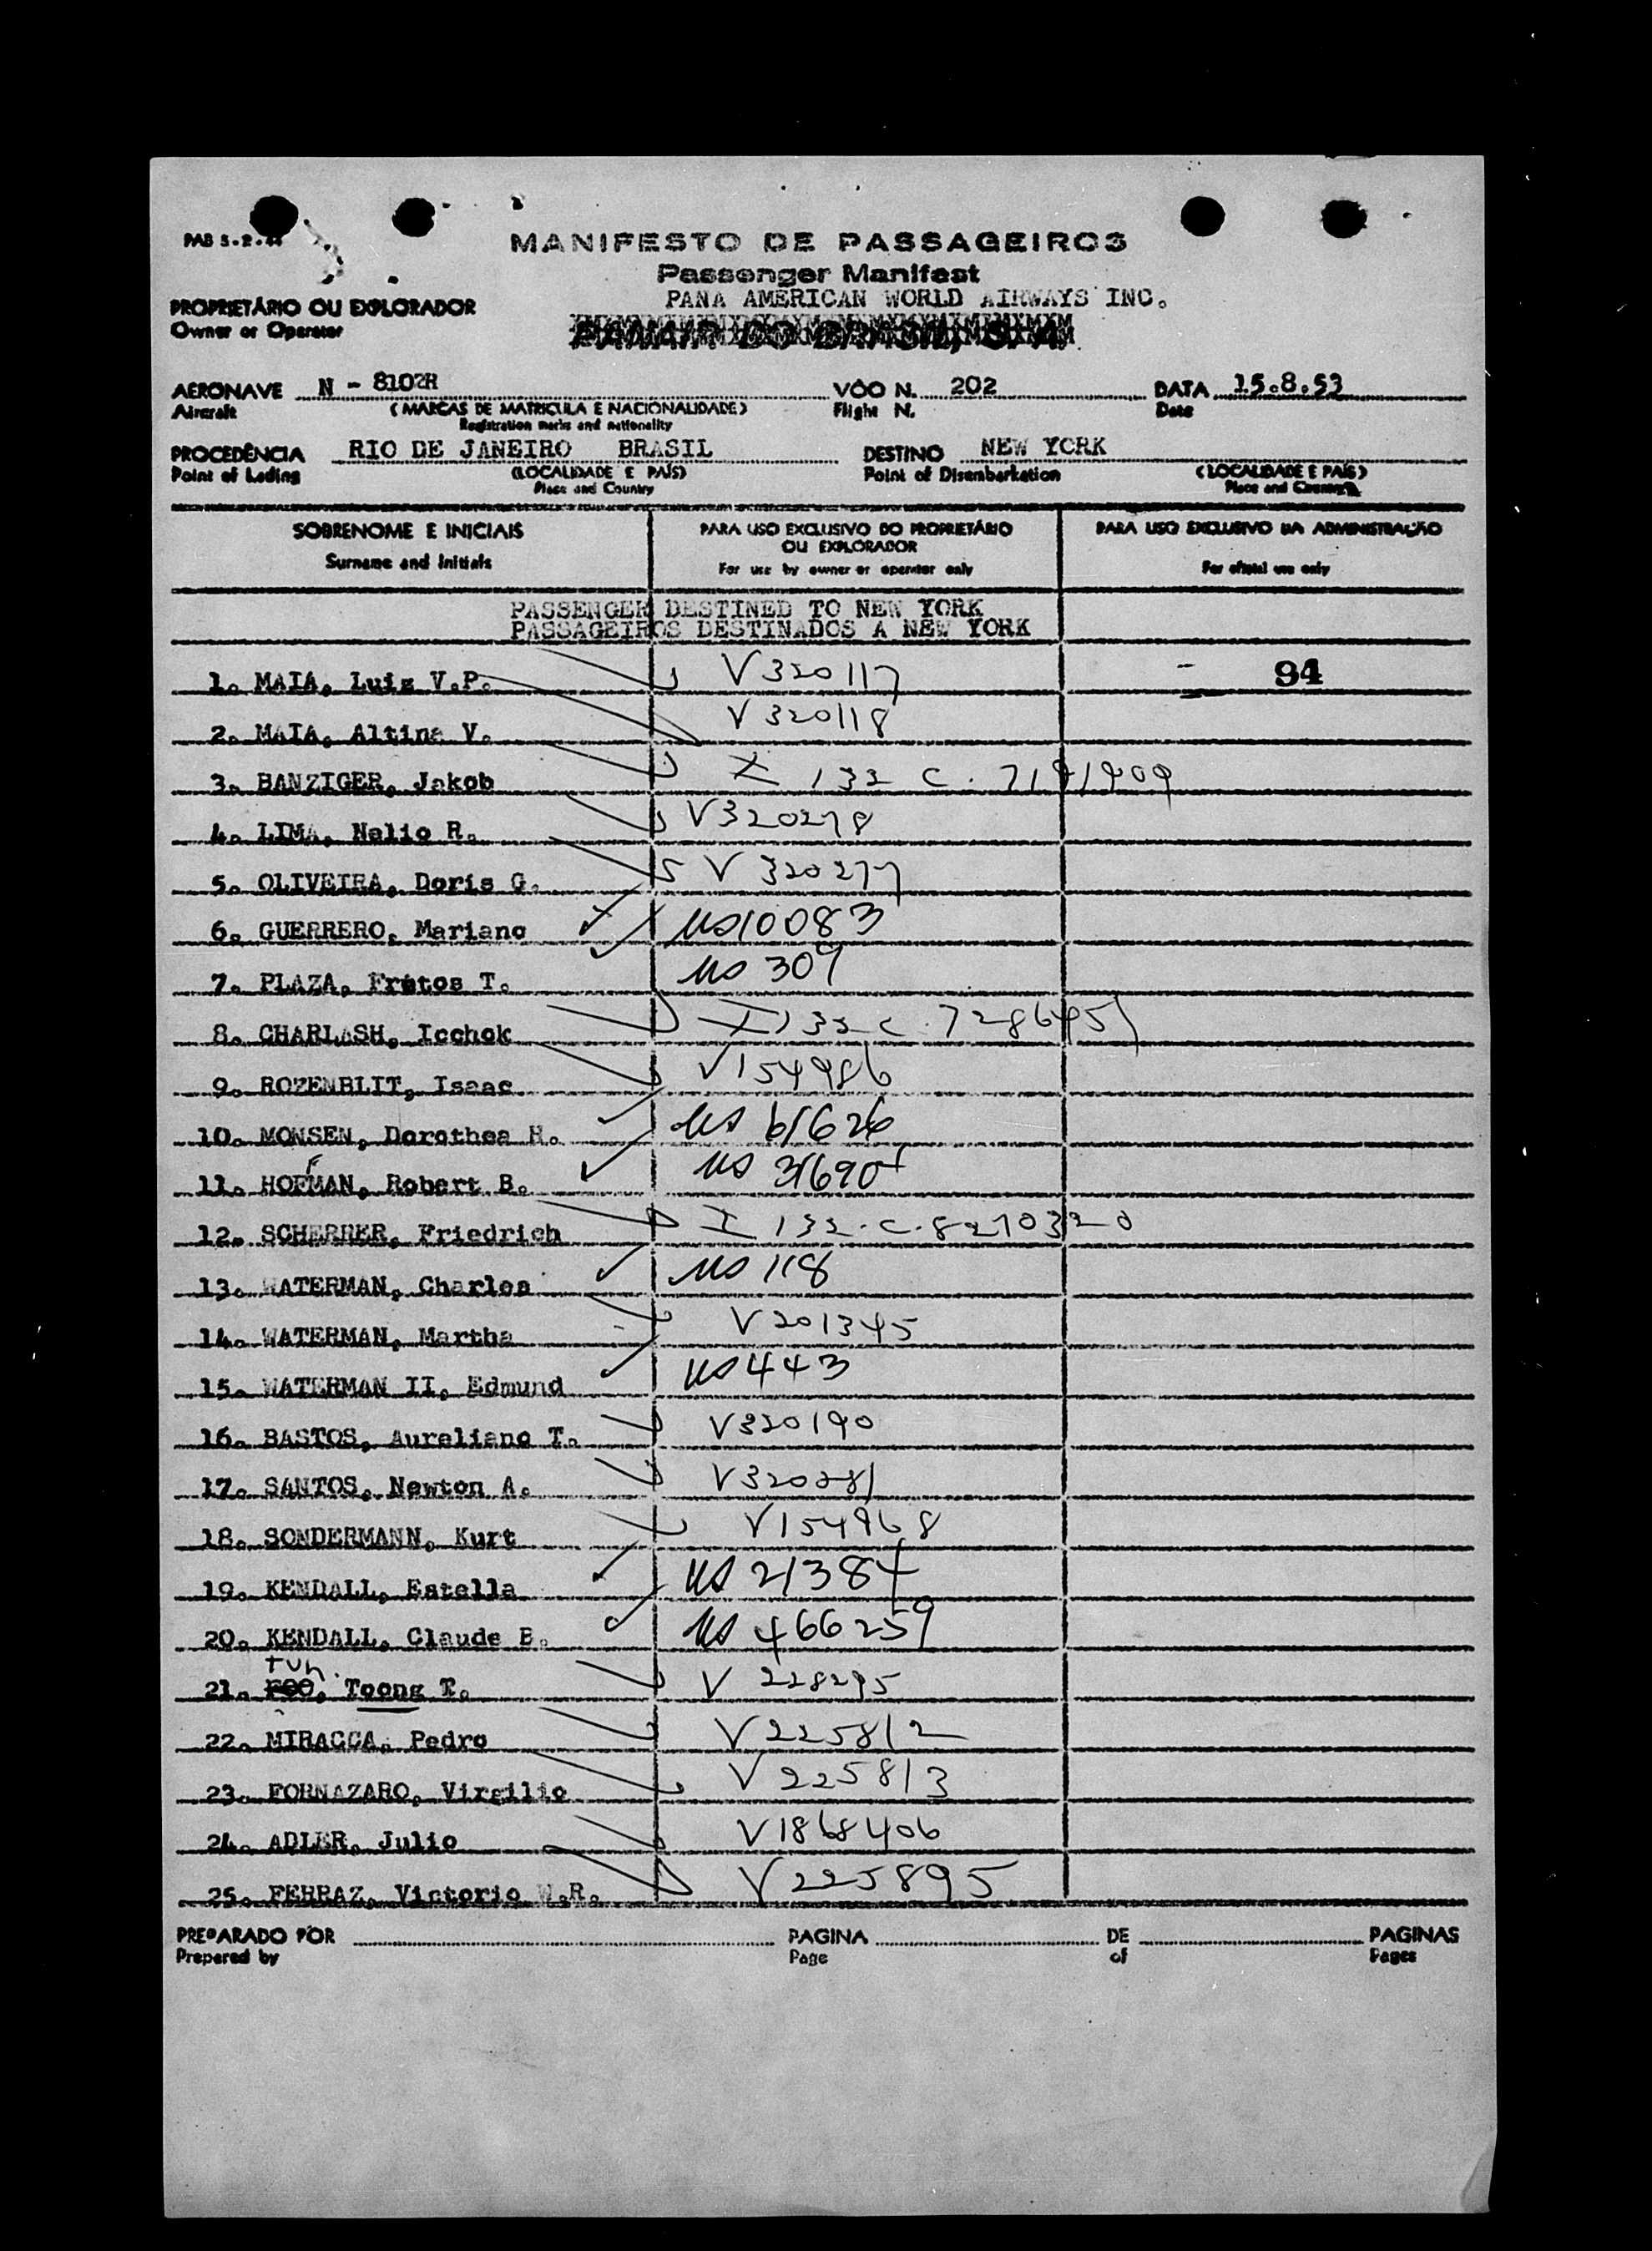 PAB 5-2-44
MANIFESTO DE PASSAGEIROS
Passenger Manifest
PANA AMERICAN WORLD AIRWAYS INC.
PROPRIETÁRIO OU EXPLORADOR
Owner or Operator
PANAIR DO BRASIL, S. A.
AERONAVE N - 8102R VÔO N. 202 DATA 15.8.53
Aircraft (MARCAS DE MATRICULA E NACIONALIDADE) Flight N. Date
Registration marks and nationality
PROCEDÊNCIA RIO DE JANEIRO BRASIL DESTINO NEW YORK
Point of Lading (LOCALIDADE E PAÍS) Point of Disembarkation (LOCALIDADE E PAÍS)
Place and Country Place and Country
SOBRENOME E INICIAIS PARA USO EXCLUSIVO DO PROPRIETÁRIO PARA USO EXCLUSIVO DA ADMINISTRAÇÃO
OU EXPLORADOR
Surname and initials For use by owner or operator only For oficial use only
PASSENGER DESTINED TO NEW YORK
PASSAGEIROS DESTINADOS A NEW YORK
1. MAIA, Luiz V.P. V320117 94
2. MAIA, Altina V. V320118
3. BANZIGER, Jakob I 132 C.
4. LIMA, Nelio R. V320278
5. OLIVEIRA, Doris G. V 320277
6. GUERRERO, Mariano US10083
7. PLAZA, Frutos T. US 309
8. CHARLASH, Icchok I 132 C.
9. ROZENBLIT, Isaac V154986
10. MONSEN, Dorothea H. US 61626
11. HOFMAN, Robert B. F US 31690
12. SCHERRER, Friedrich I 132.C.8270320
13. WATERMAN, Charles US 118
14. WATERMAN, Martha V201345
15. WATERMAN II, Edmund US 443
16. BASTOS, Aureliano T. V320190
17. SANTOS, Newton A. V320281
18. SONDERMANN, Kurt V154968
19. KENDALL, Estella US 21384
20. KENDALL, Claude B. US 466259
TUN
21. FOO, Toong T. V 228295
22. MIRACCA, Pedro V225812
23. FORNAZARO, Virgilio V225813
24. ADLER, Julio V1868406
25. FERRAZ, Victorio W.R. V225895
PREPARADO POR PAGINA DE PAGINAS
Prepared by Page of Pages